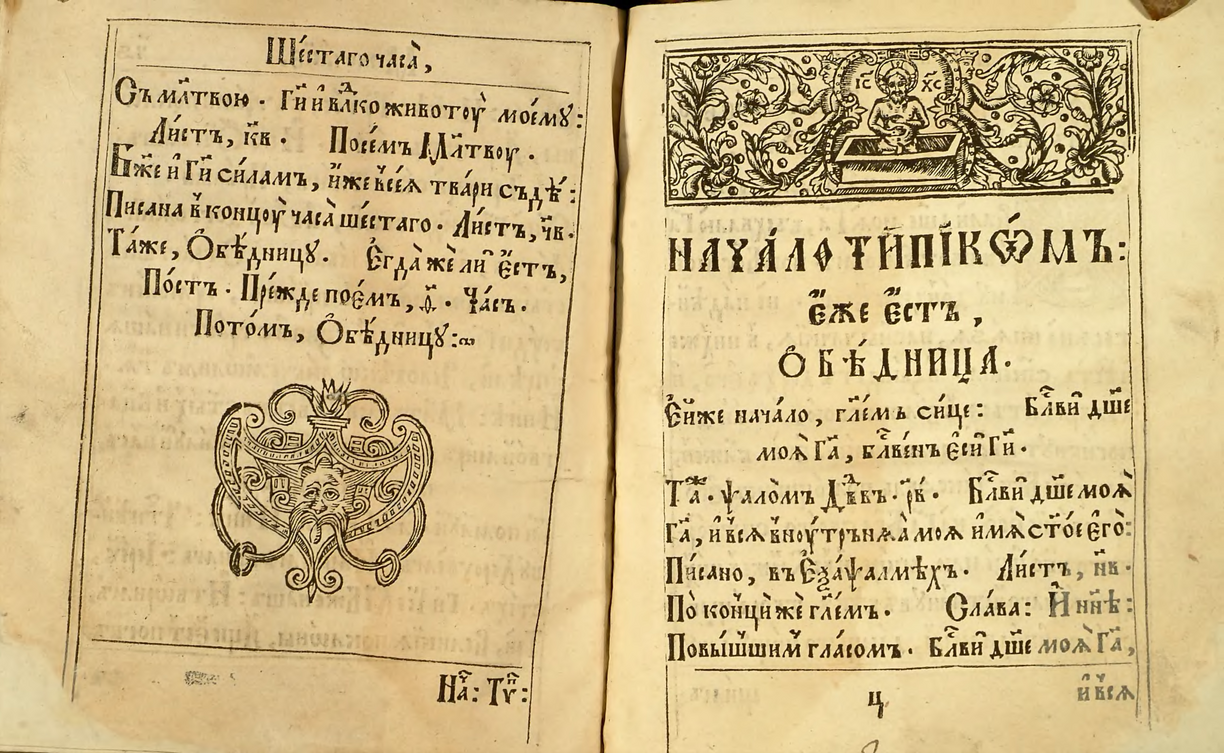 Ше́стаго часа̀,
Съмл҃твою · Гⷭ҇и и҆ влⷣко животоу̀ моемꙋ:
Ли́стъ, к҃в · Посе́мъ Мл҃твоу ·
Бж҃е и҆ Гⷭ҇и си́ламъ, и҆́же всеѧ̀ тва́ри съдѣ́:
Писана в концоу̀ часа̀ шестаго · Ли́стъ, ч҃в ·
Та́же, Ѻ҆бѣ́дницꙋ · Е҆гда̀ же ли є҆́стъ,
По́стъ · Пре́жде пое́мъ, ѳ҃ · Ча́съ ·
Пото́мъ, Ѻ҆бѣ́дницꙋ:
На҃: Тѵ҃п:
ІС҃ ХС҃
НАЧА́ЛО ТѴПІКѠ́МЪ:
є҆́же є҆́стъ,
Ѻ҆БѢ́ДНИЦА ·
Е҆йже нача́ло, гл҃емъ си́це: Бл҃ви дш҃е
моѧ̀ Гⷭ҇а, бл҃ве́нъ є҆сѝ Гⷭ҇и ·
Та́ж · ѱало́мъ Дв҃дъ · р҃в · Бл҃ви дш҃е моѧ̀
Гⷭ҇а, и҆ всѧ̀ вноу́трънѧѧ̀ моѧ̀ и҆́мѧ ст҃ое є҆го̀:
Пи́сано, въ Е҆ѯаѱалмѣ́хъ · Ли́стъ, н҃в ·
По конци́ же гл҃емъ · Сла́ва: И҆ нн҃ѣ:
Повы́шшим гла́сомъ · Бл҃ви дш҃е моѧ̀ Гⷭ҇а,
ц
и҆ всѧ̀